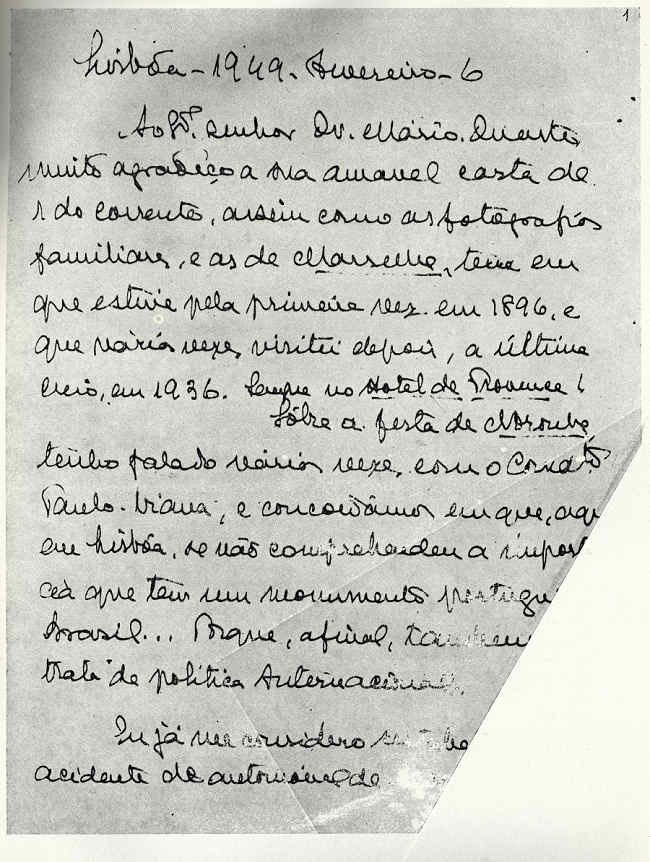 1
Lisbôa - 1949 - Fevereiro - 6
Ao Senhor Dr. Mário Duarte
muito agradeço a sua amavel carta de
1 do corrente, assim como as fotografias
familiares, e as de Marselha, terra em
que estive pela primeira vez em 1896, e
que várias vezes visitei depois, a última
creio, em 1936. Sempre no Hotel de Provence!
Sôbre a festa de Noronha,
tenho falado várias vezes, com o Comdte
Paulo Viana, e concordámos em que, aqu
em Lisbôa, se não comprehendeu a import
cia que tem um monumento portugu
Brasil... Porque, afinal, tambem
trata de política Internacional.
Eu já me considero
acidente de automóvel de